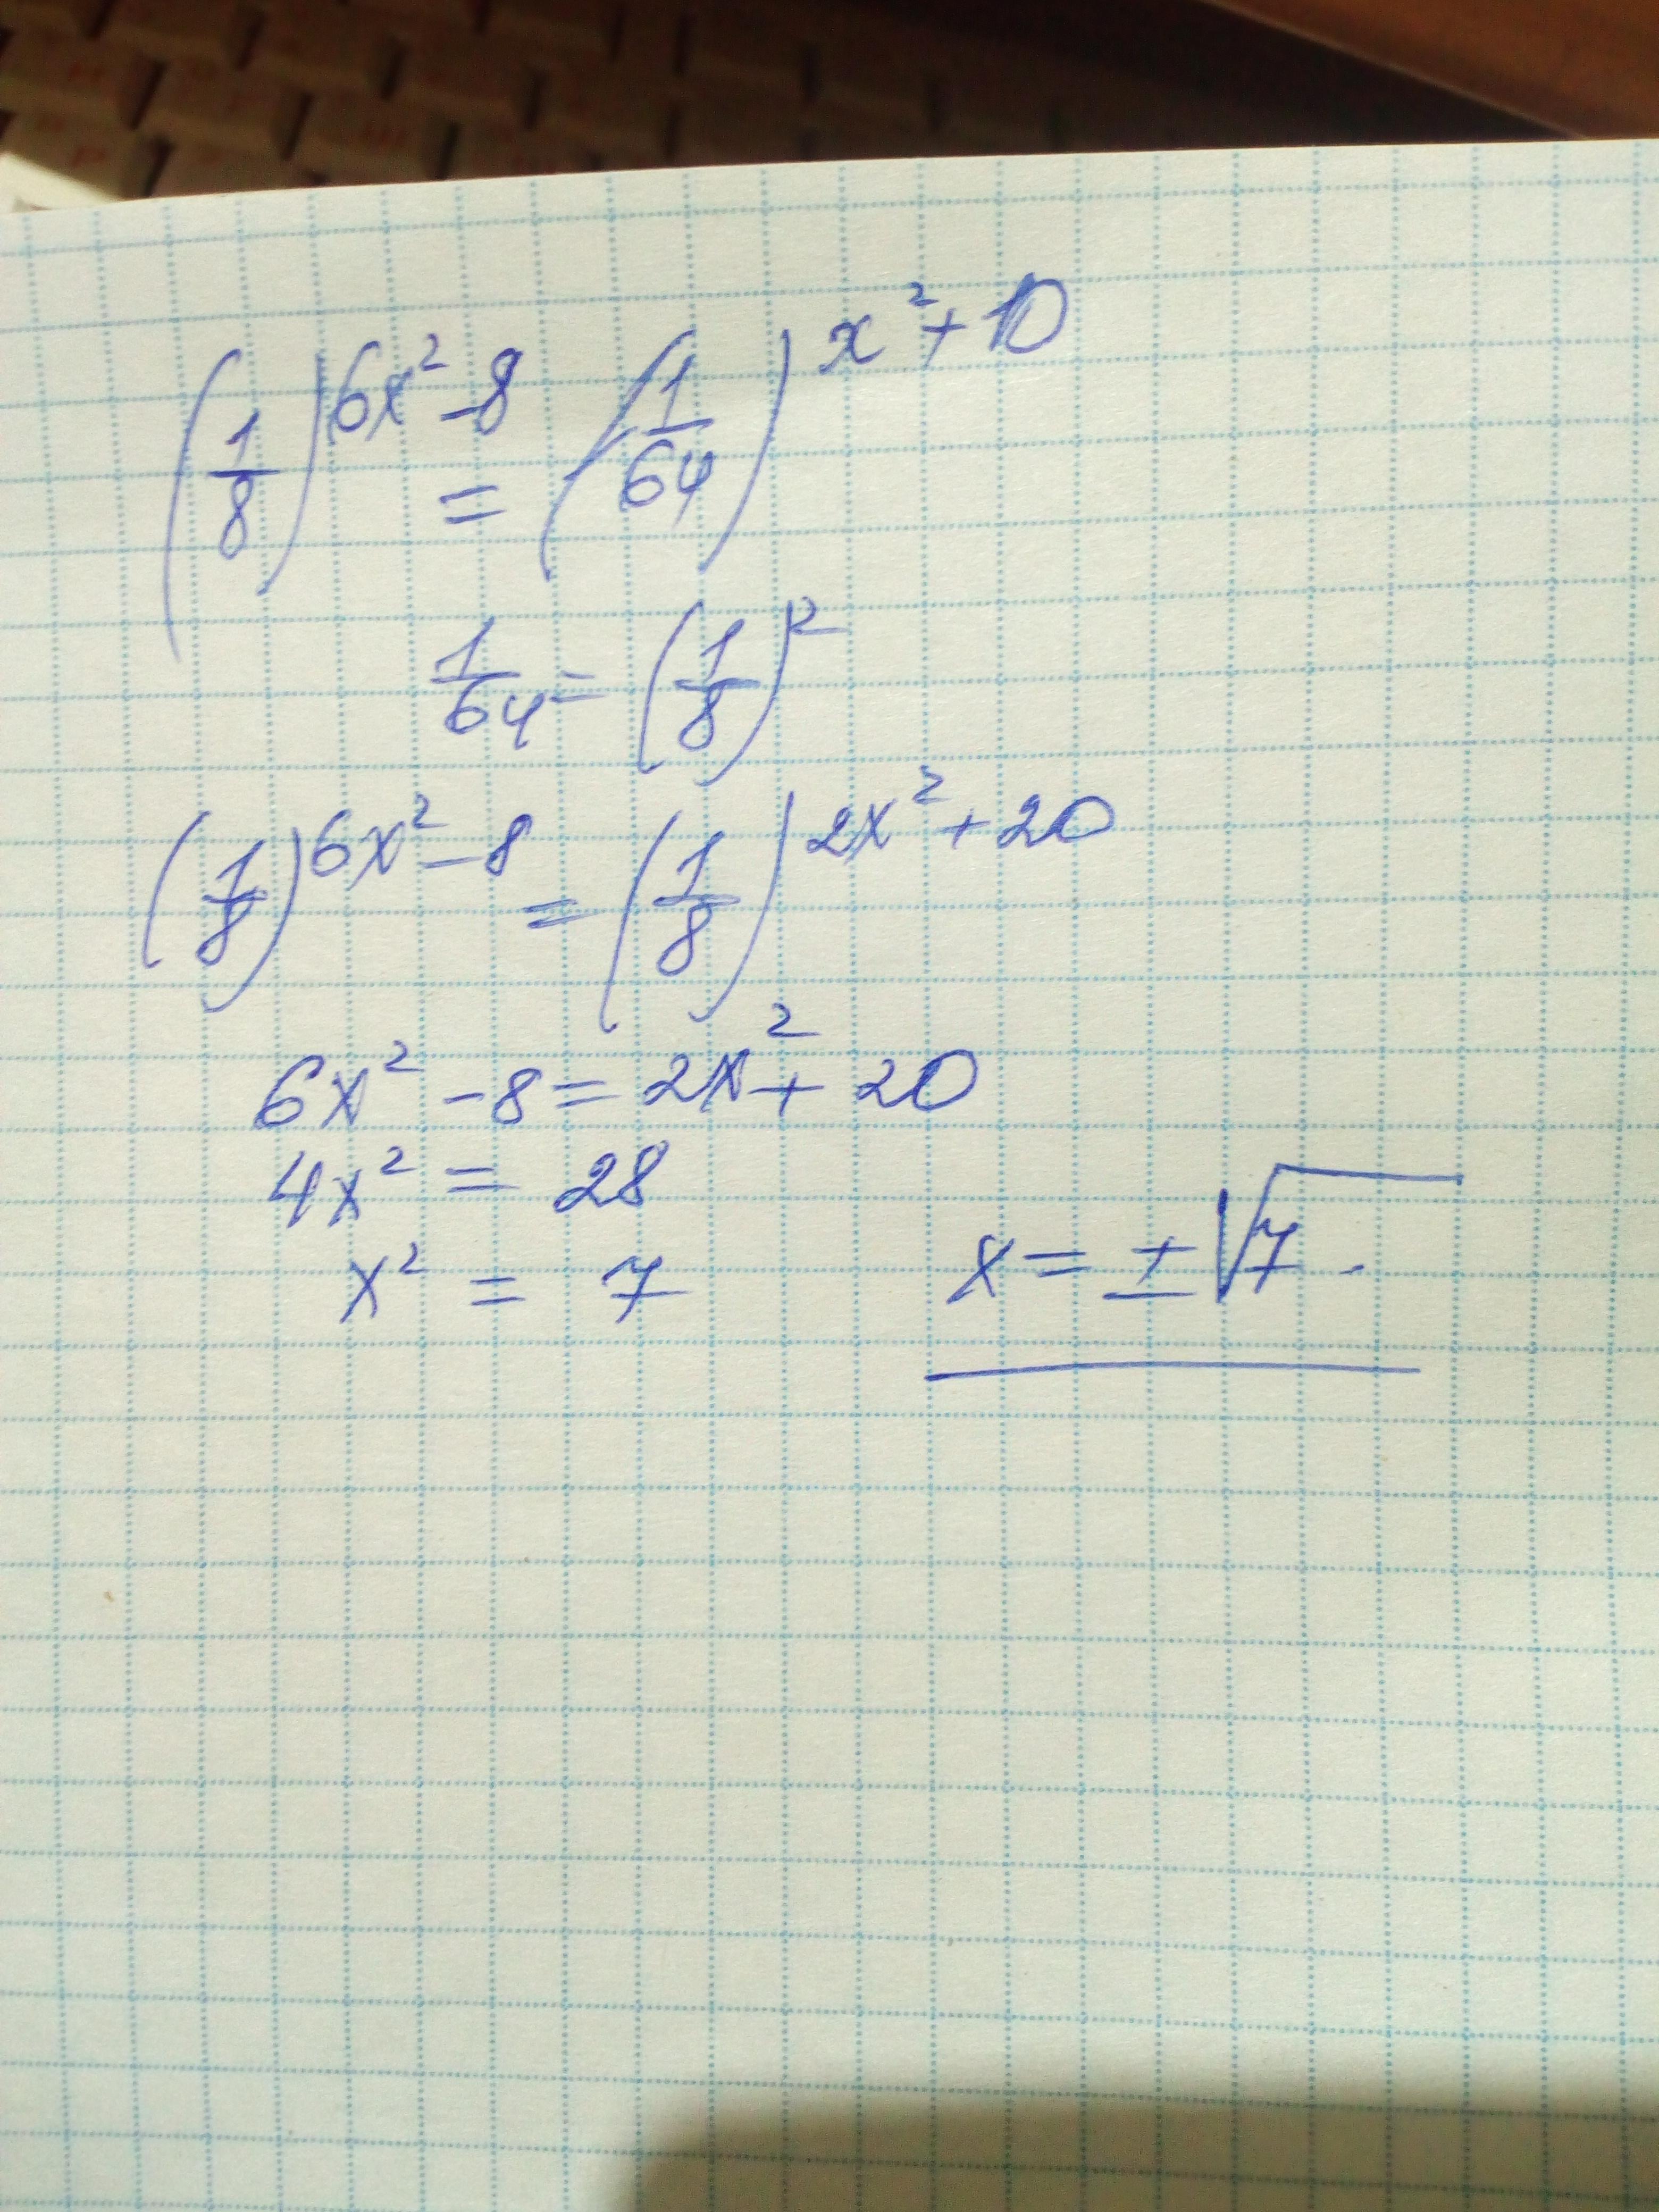 (1/8)^(6x²-8) = (1/64)^(x²+10)
1/64 = (1/8)²
(1/8)^(6x²-8) = (1/8)^(2x²+20)
6x² - 8 = 2x² + 20
4x² = 28
x² = 7
x = ±√7.